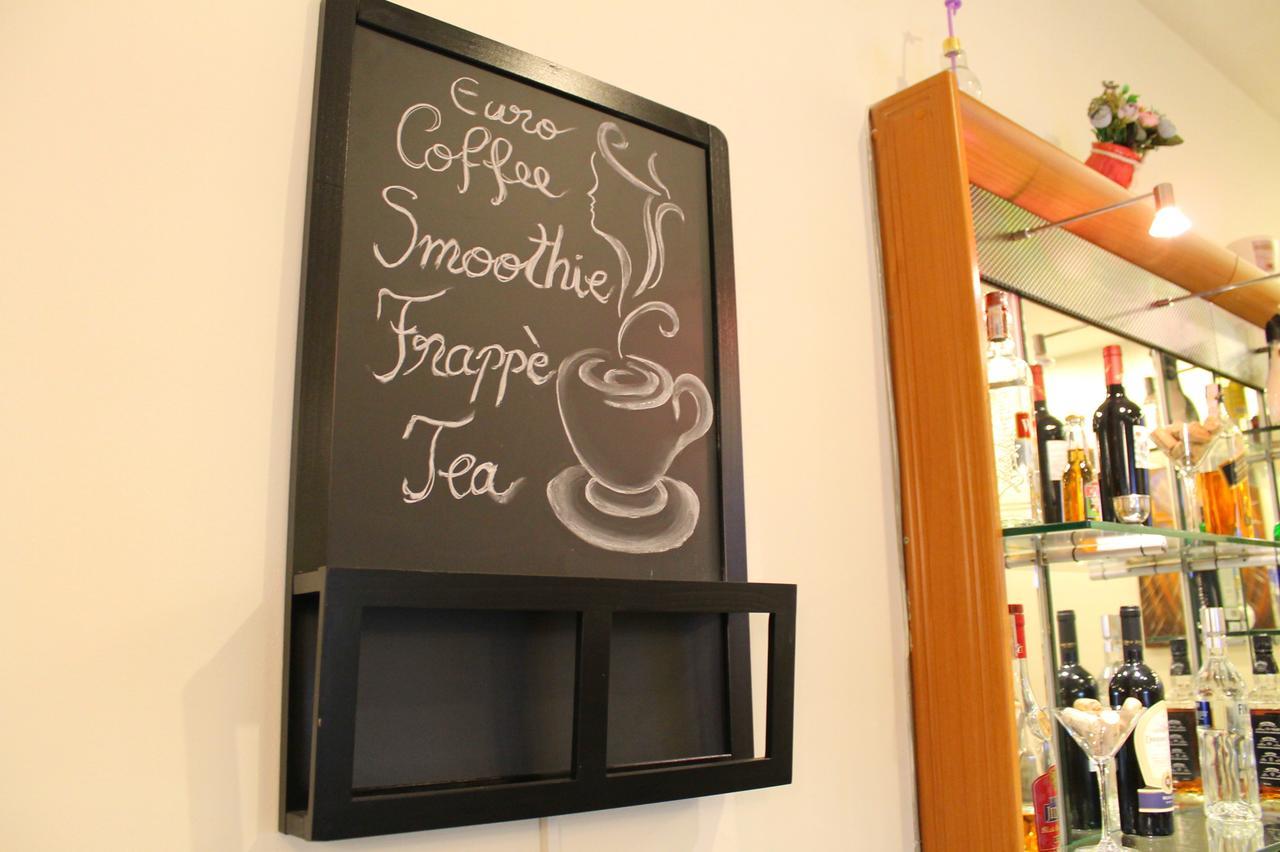 Euro
Coffee
Smoothie
Frappè
Tea